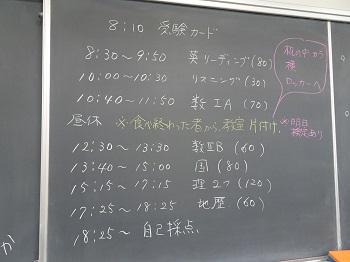 8:10 受験カード
8:30~9:50 英リーディング(80)
10:00~10:30 リスニング(30)
10:40~11:50 数ⅠA (70)
昼休 ※食べ終わった者から、教室片付け。
12:30~13:30 数ⅡB (60)
13:40~15:00 国 (80)
15:15~17:15 理2つ (120)
17:25~18:25 地歴 (60)
18:25~ 自己採点
机の中から
横
ロッカーへ
※明日
検定あり
か